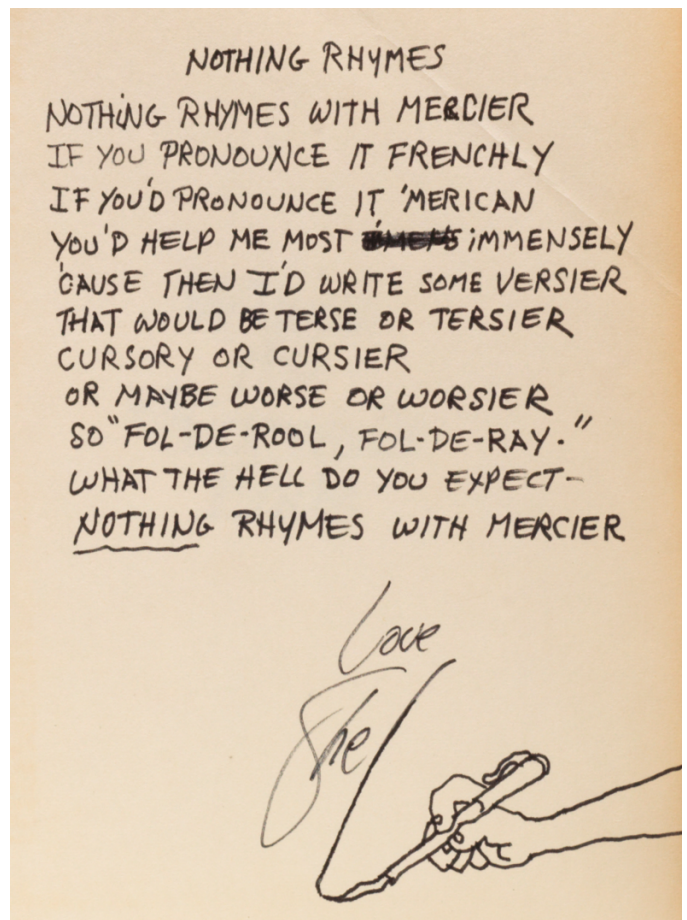 NOTHING RHYMES
NOTHING RHYMES WITH MERCIER
IF YOU PRONOUNCE IT FRENCHLY
IF YOU'D PRONOUNCE IT 'MERICAN
YOU'D HELP ME MOST IMMENSELY
'CAUSE THEN I'D WRITE SOME VERSIER
THAT WOULD BE TERSE OR TERSIER
CURSORY OR CURSIER
OR MAYBE WORSE OR WORSIER
SO "FOL-DE-ROOL, FOL-DE-RAY."
WHAT THE HELL DO YOU EXPECT-
NOTHING RHYMES WITH MERCIER
Love
Shel